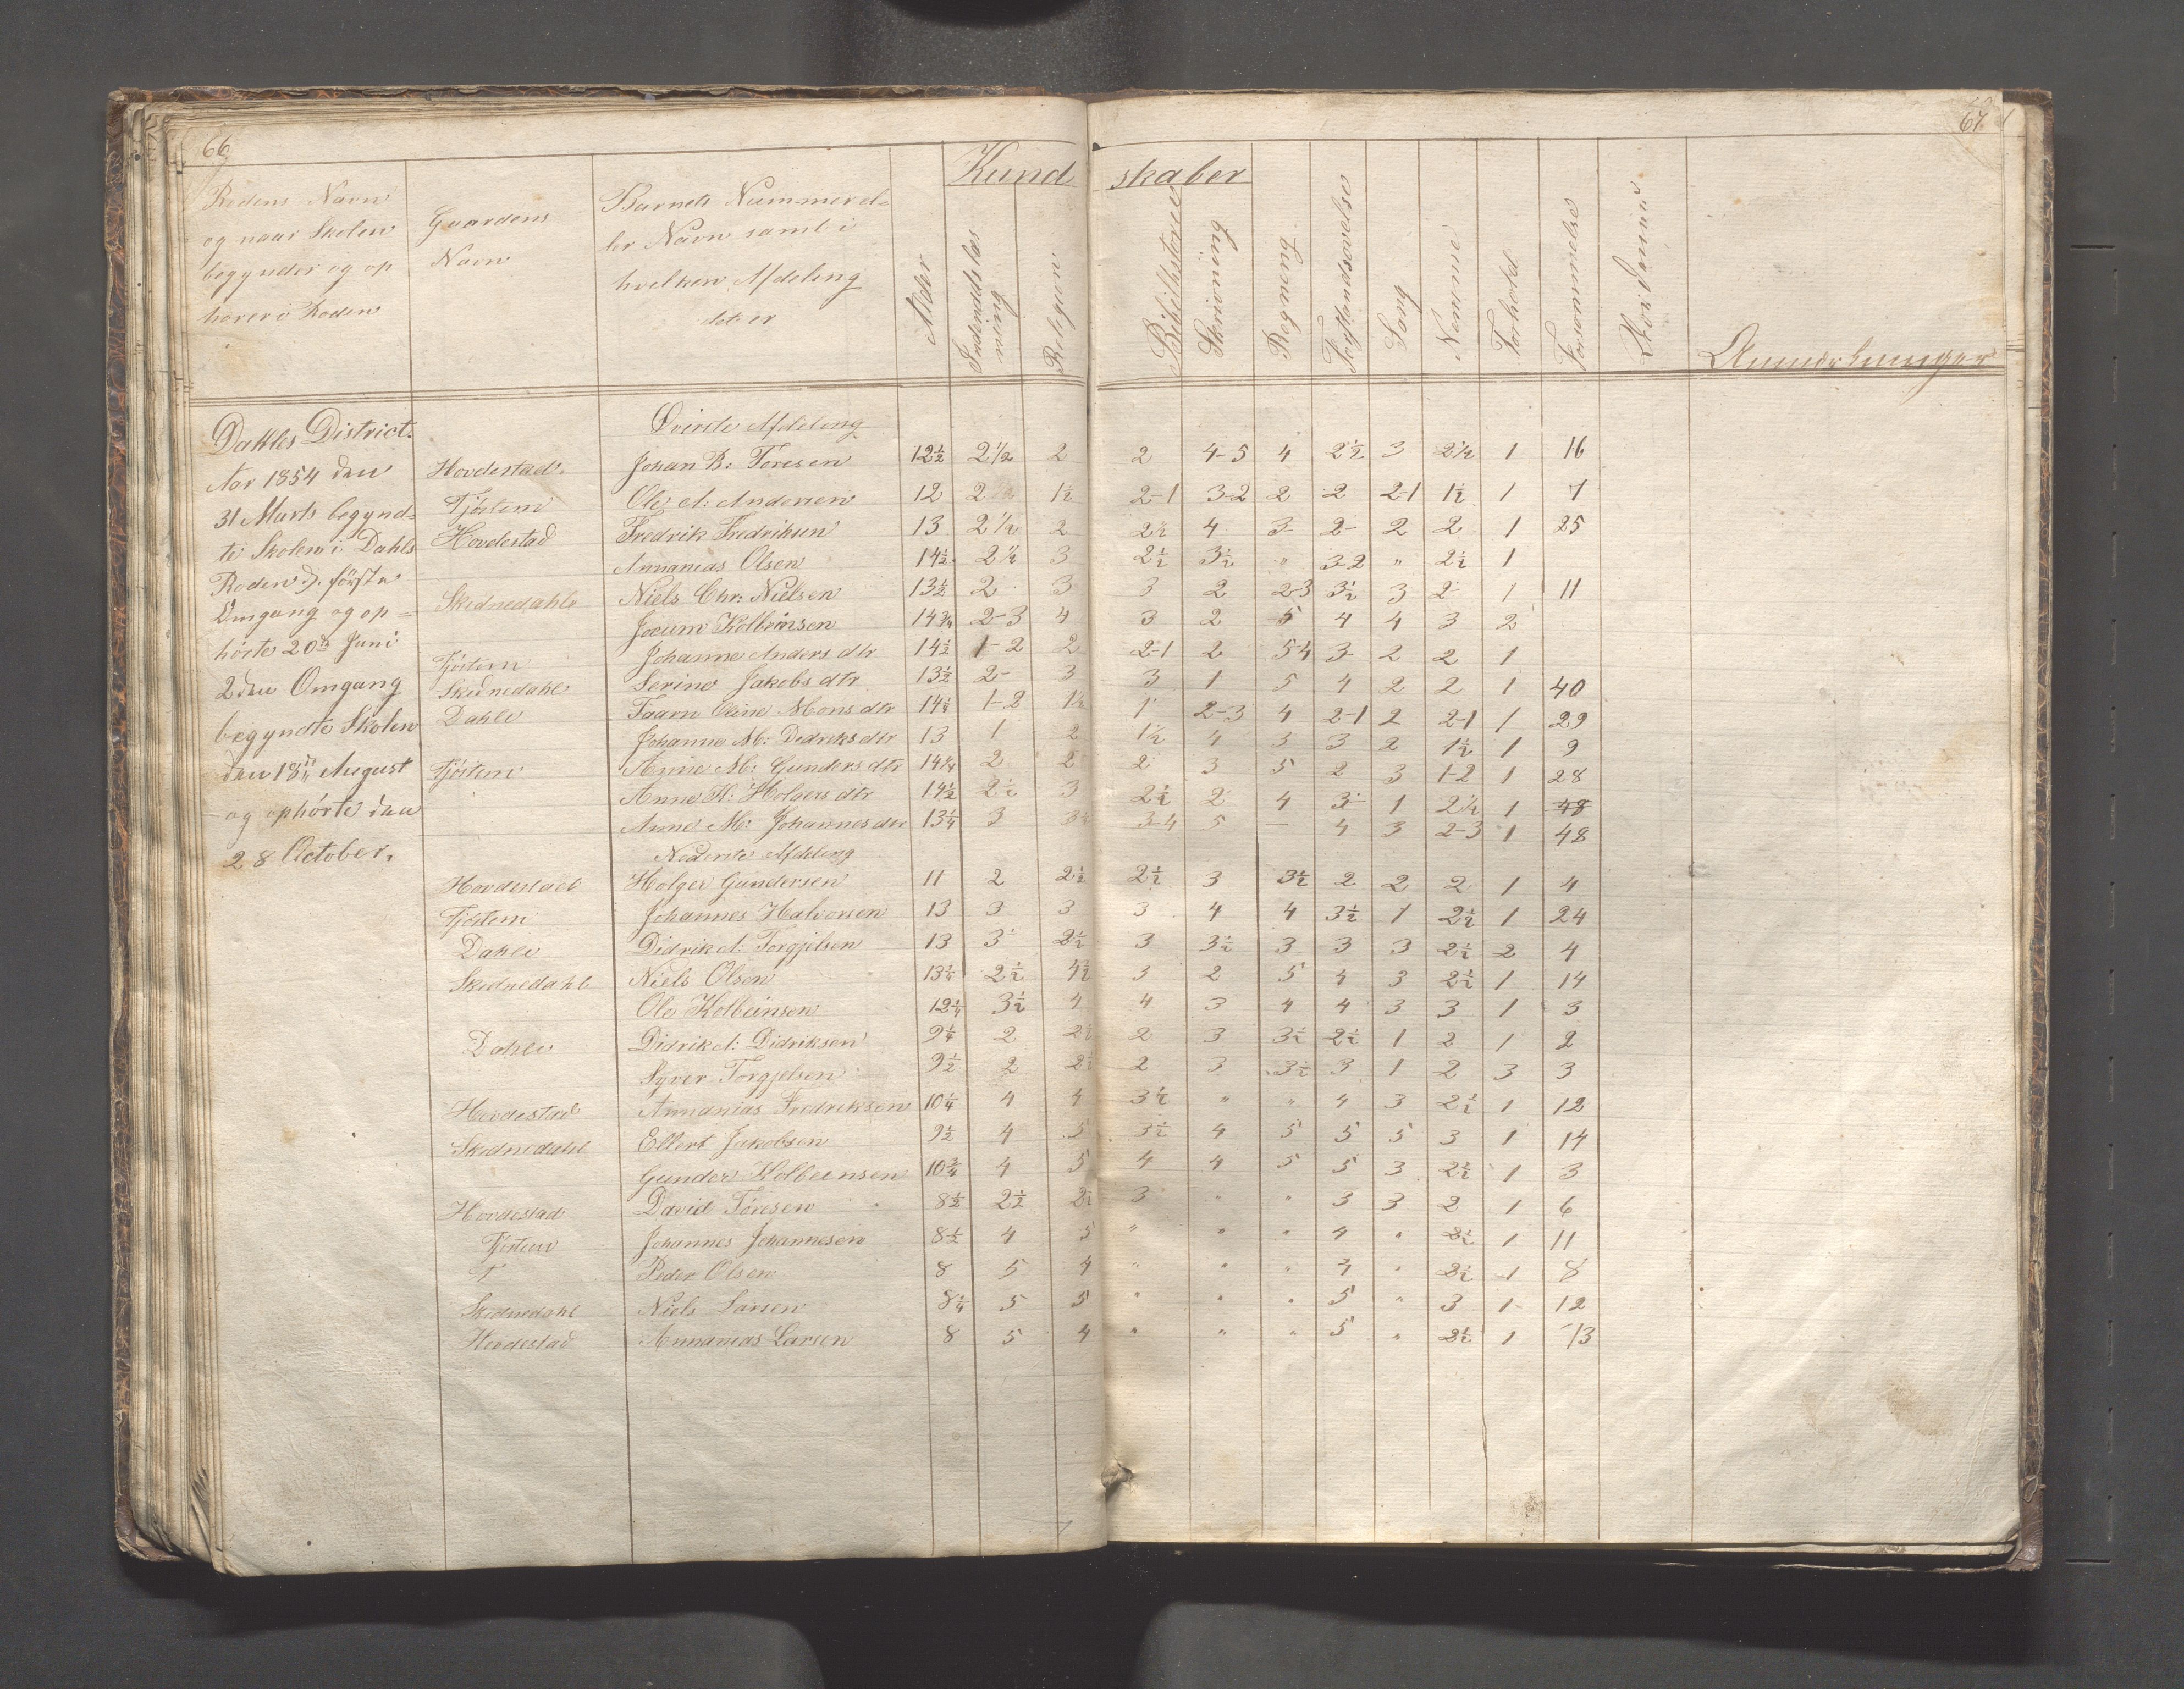 66
67
Kundskaber
Rodens Navn
og naar Skolen
begynder og op
hører i Roden
Gaardens
Navn
Barnets Nummer el-
ler Navn samt i
hvilken Afdeling
det er
Alder
Indenadslæs
ning
Religion
Bibelhistorie
Skrivning
Regning
Forstandsøvelse
Sang
Nemme
Forhold
Forsømmelse
Anmærkninger
Dahles District.
Aar 1854 den
31 Marts begynd-
te Skolen i Dahls
Roden første
Omgang og op-
hørte 20de Juni
2den Omgang
begyndte Skolen
den 18de August
og ophørte den
28 October.
Øverste Afdeling
Hovdestad Johan B: Toresen 12½ 2½ 2 2 4-5 4 2½ 3 2½ 1 16
Tjöstem Ole A: Andersen 12 2 1½ 2-1 3-2 2 2 2-1 1½ 1 7
Hovdestad Fredrik Fredriksen 13 2½ 2 2½ 4 3- 2- 2 2 1 25
Annanias Olsen 14½ 2½ 3 2½ 3½ " 3-2 " 2½ 1
Skednedahl Niels Chr: Nielsen 13½ 2 3 3 2 2-3 3½ 3 2- 1 11
Jocum Kolbeinsen 14¾ 2-3 4 3 2 5 4 4 3 2
Tjöstem Johanne Anders dtr 14½ 1-2 2 2-1 2 5-4 3- 2 2 1
Skednedahl Serine Jakobs dtr 13½ 2- 3 3 1 5 4 2 2 1 40
Dahle Taarn Oline Mons dtr 14¼ 1-2 1½ 1 2-3 4 2-1 2 2-1 1 29
Johanne M: Didriks dtr 13 1 2 1½ 4 3 3 2 1½ 1 9
Tjöstem Anne M: Gunders dtr 14¼ 2 2 2 3 5 2 3 1-2 1 28
Anne K: Holgers dtr 14½ 2½ 3 2½ 2 4 3- 1 2½ 1 48
Anne M: Johannes dtr 13¼ 3 3½ 3-4 5 — 4 3 2-3 1 48
Nederste Afdeling
Hovdestad Holger Gundersen 11 2 2½ 2½ 3 3½ 2 2 2 1 4
Tjöstem Johannes Halvorsen 13 3 3 3 4 4 3½ 1 2½ 1 24
Dahle Didrik A: Torgjelsen 13 3 2½ 3 3½ 3 3 3 2½ 2 4
Skednedahl Niels Olsen 13¼ 2½ 4½ 3 2 5 4 3 2½ 1 14
Ole Kolbeinsen 12¼ 3½ 4 4 3 4 4 3 3 1 3
Dahle Didrik A: Didriksen 9¼ 2 2½ 2 3 3½ 2½ 1 2 1 2
Syver Torgjelsen 9½ 2 2½ 2 3 3½ 3 1 2 3 3
Hovdestad Annanias Fredriksen 10¼ 4 4 3½ " " 4 3 2½ 1 12
Skednedahl Ellert Jakobsen 9½ 4 5 3½ 4 5 5 5 3 1 14
Gunder Kolbeinsen 10¾ 4 5 4 4 5 5 3 2½ 1 3
Hovdestad David Toresen 8½ 2½ 2½ 3 " " 3 3 2 1 6
Tjöstem Johannes Johannesen 8½ 4 5 " " " 4 " 2½ 1 11
T Peder Olsen 8 5 4 " " " 4 " 2½ 1 8
Skednedahl Niels Larsen 8¼ 5 5 " " " 5 " 3 1 12
Hovdestad Annanias Larsen 8 5 4 " " " 5 " 2½ 1 13